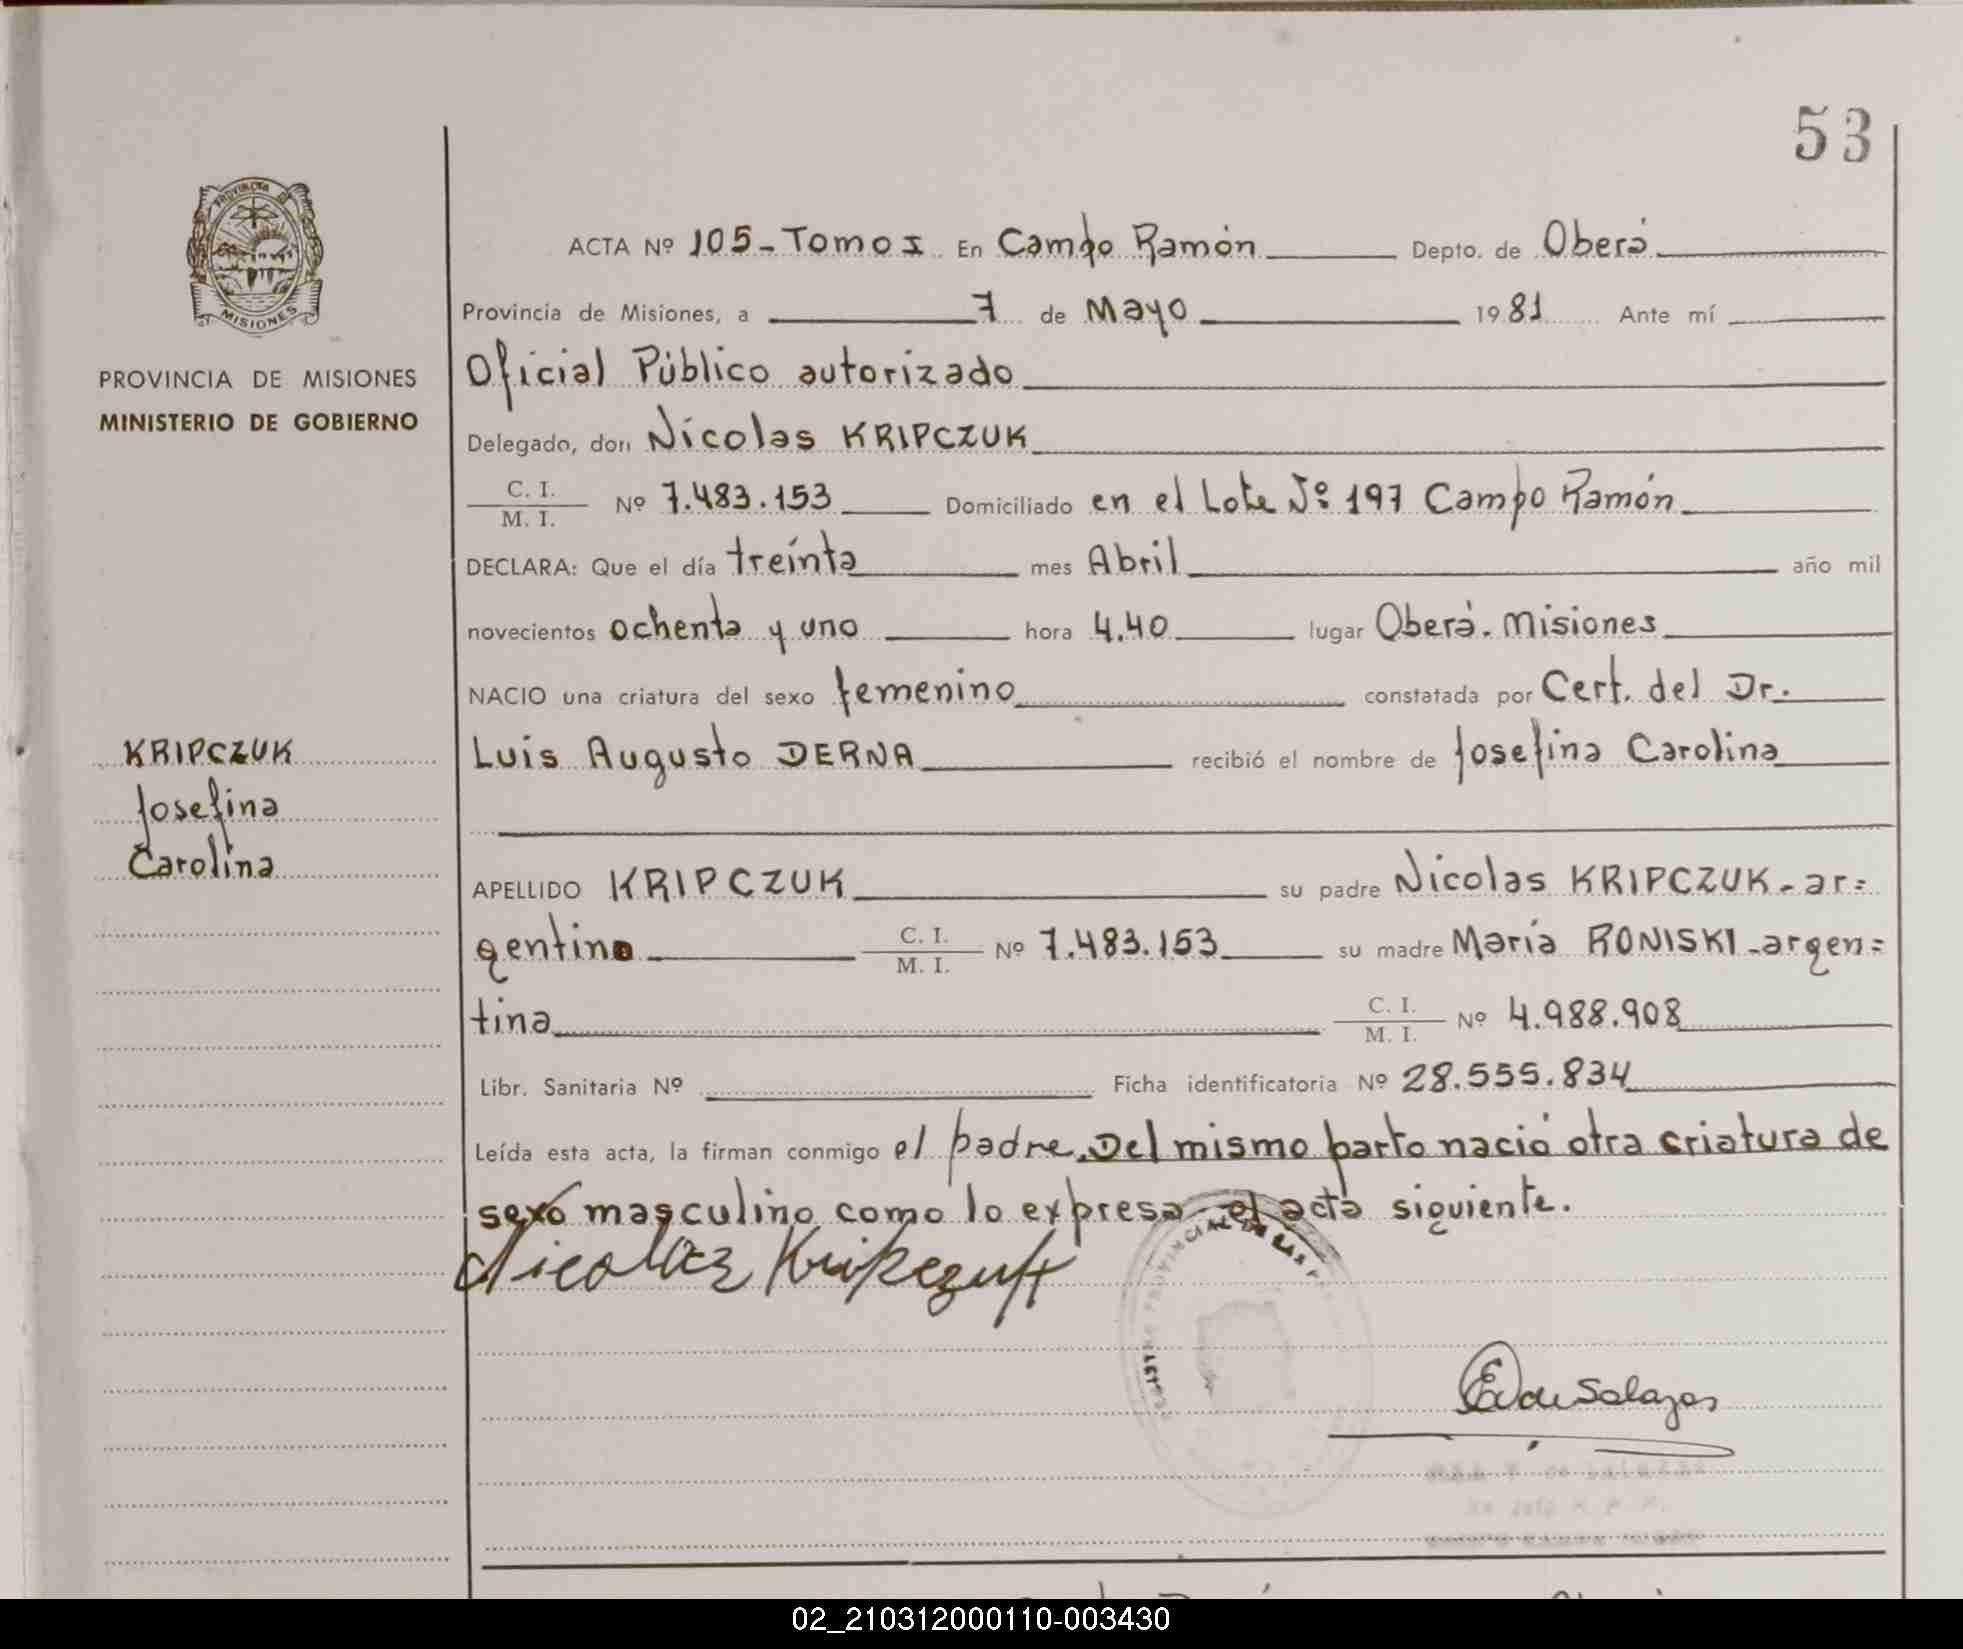 53
PROVINCIA DE
MISIONES
PROVINCIA DE MISIONES
MINISTERIO DE GOBIERNO
KRIPCZUK
Josefina
Carolina
ACTA Nº 105-Tomo I En Campo Ramón Depto. de Oberá
Provincia de Misiones, a 7 de Mayo 1981 Ante mí
Oficial Público autorizado
Delegado, don Nicolas KRIPCZUK
C. I.
M. I. Nº 7.483.153 Domiciliado en el Lote Nº 197 Campo Ramón
DECLARA: Que el día treinta mes Abril año mil
novecientos ochenta y uno hora 4.40 lugar Oberá. Misiones
NACIO una criatura del sexo femenino constatada por Cert. del Dr.
Luis Augusto DERNA recibió el nombre de Josefina Carolina
APELLIDO KRIPCZUK su padre Nicolas KRIPCZUK - ar=
gentino C. I.
M. I. Nº 7.483.153 su madre María RONISKI - argen=
tina C. I.
M. I. Nº 4.988.908
Libr. Sanitaria Nº Ficha identificatoria Nº 28.555.834
Leída esta acta, la firman conmigo el padre. Del mismo parto nació otra criatura de
sexo masculino como lo expresa el acta siguiente.
Nicolas Kripczuk
PROVINCIAL DE LAS
de Salazar
02_210312000110-003430